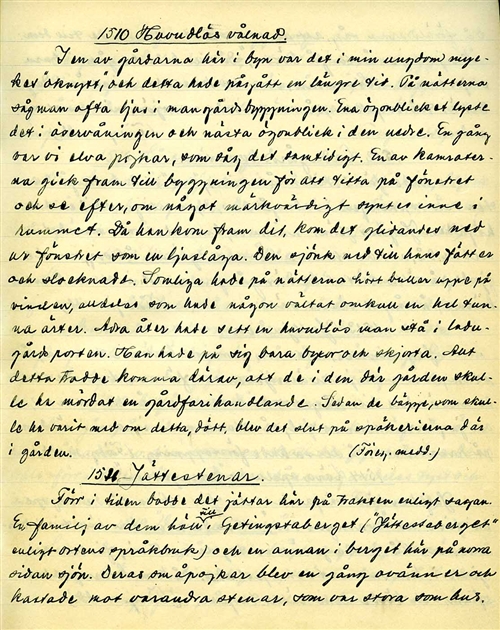 1510 Huvudlös vålnad.
I en av gårdarna här i byn var det i min ungdom myc-
ket "oknytt", och detta hade påstått en längre tid. På nätterna
såg man ofta ljus i mangårdsbyggningen. Ena ögonblicket lyste
det i övervåningen och nästa ögonblick i den nedre. En gång
var vi elva pojkar, som såg det samtidigt. En av kamrater-
na gick fram till byggningen för att titta på fönstret
och se efter, om något märkvärdigt syntes inne i
rummet. Då han kom fram dit, kom det glidandes ned
av fönstret som en ljuslåga. Den sjönk ned till hans fötter
och slocknade. Somliga hade på nätterna hört buller uppe på
vinden, alldeles som hade någon vältat omkull en hel tun-
na ärter. Andra åter hade sett en huvudlös man stå i ladu-
gårdsporten. Han hade på sig bara byxor och skjorta. Allt
detta trodde komma därav, att de i den där gården skul-
le ha mördat en gårdfarihandlande. Sedan de bägge, som skul-
le ha varit med om detta, dött, blev det slut på spökerierna där
i gården. (Föreg. medd.)
1511 Jättestenar.
Förr i tiden bodde det jättar här på trakten enligt sagan.
En familj av dem höll till i Getingstaberget ("Jättestaberget"
enligt ortens språkbruk) och en annan i berget här på norra
sidan sjön. Deras småpojkar blev en gång ovänner och
kastade mot varandra stenar, som var stora som hus.